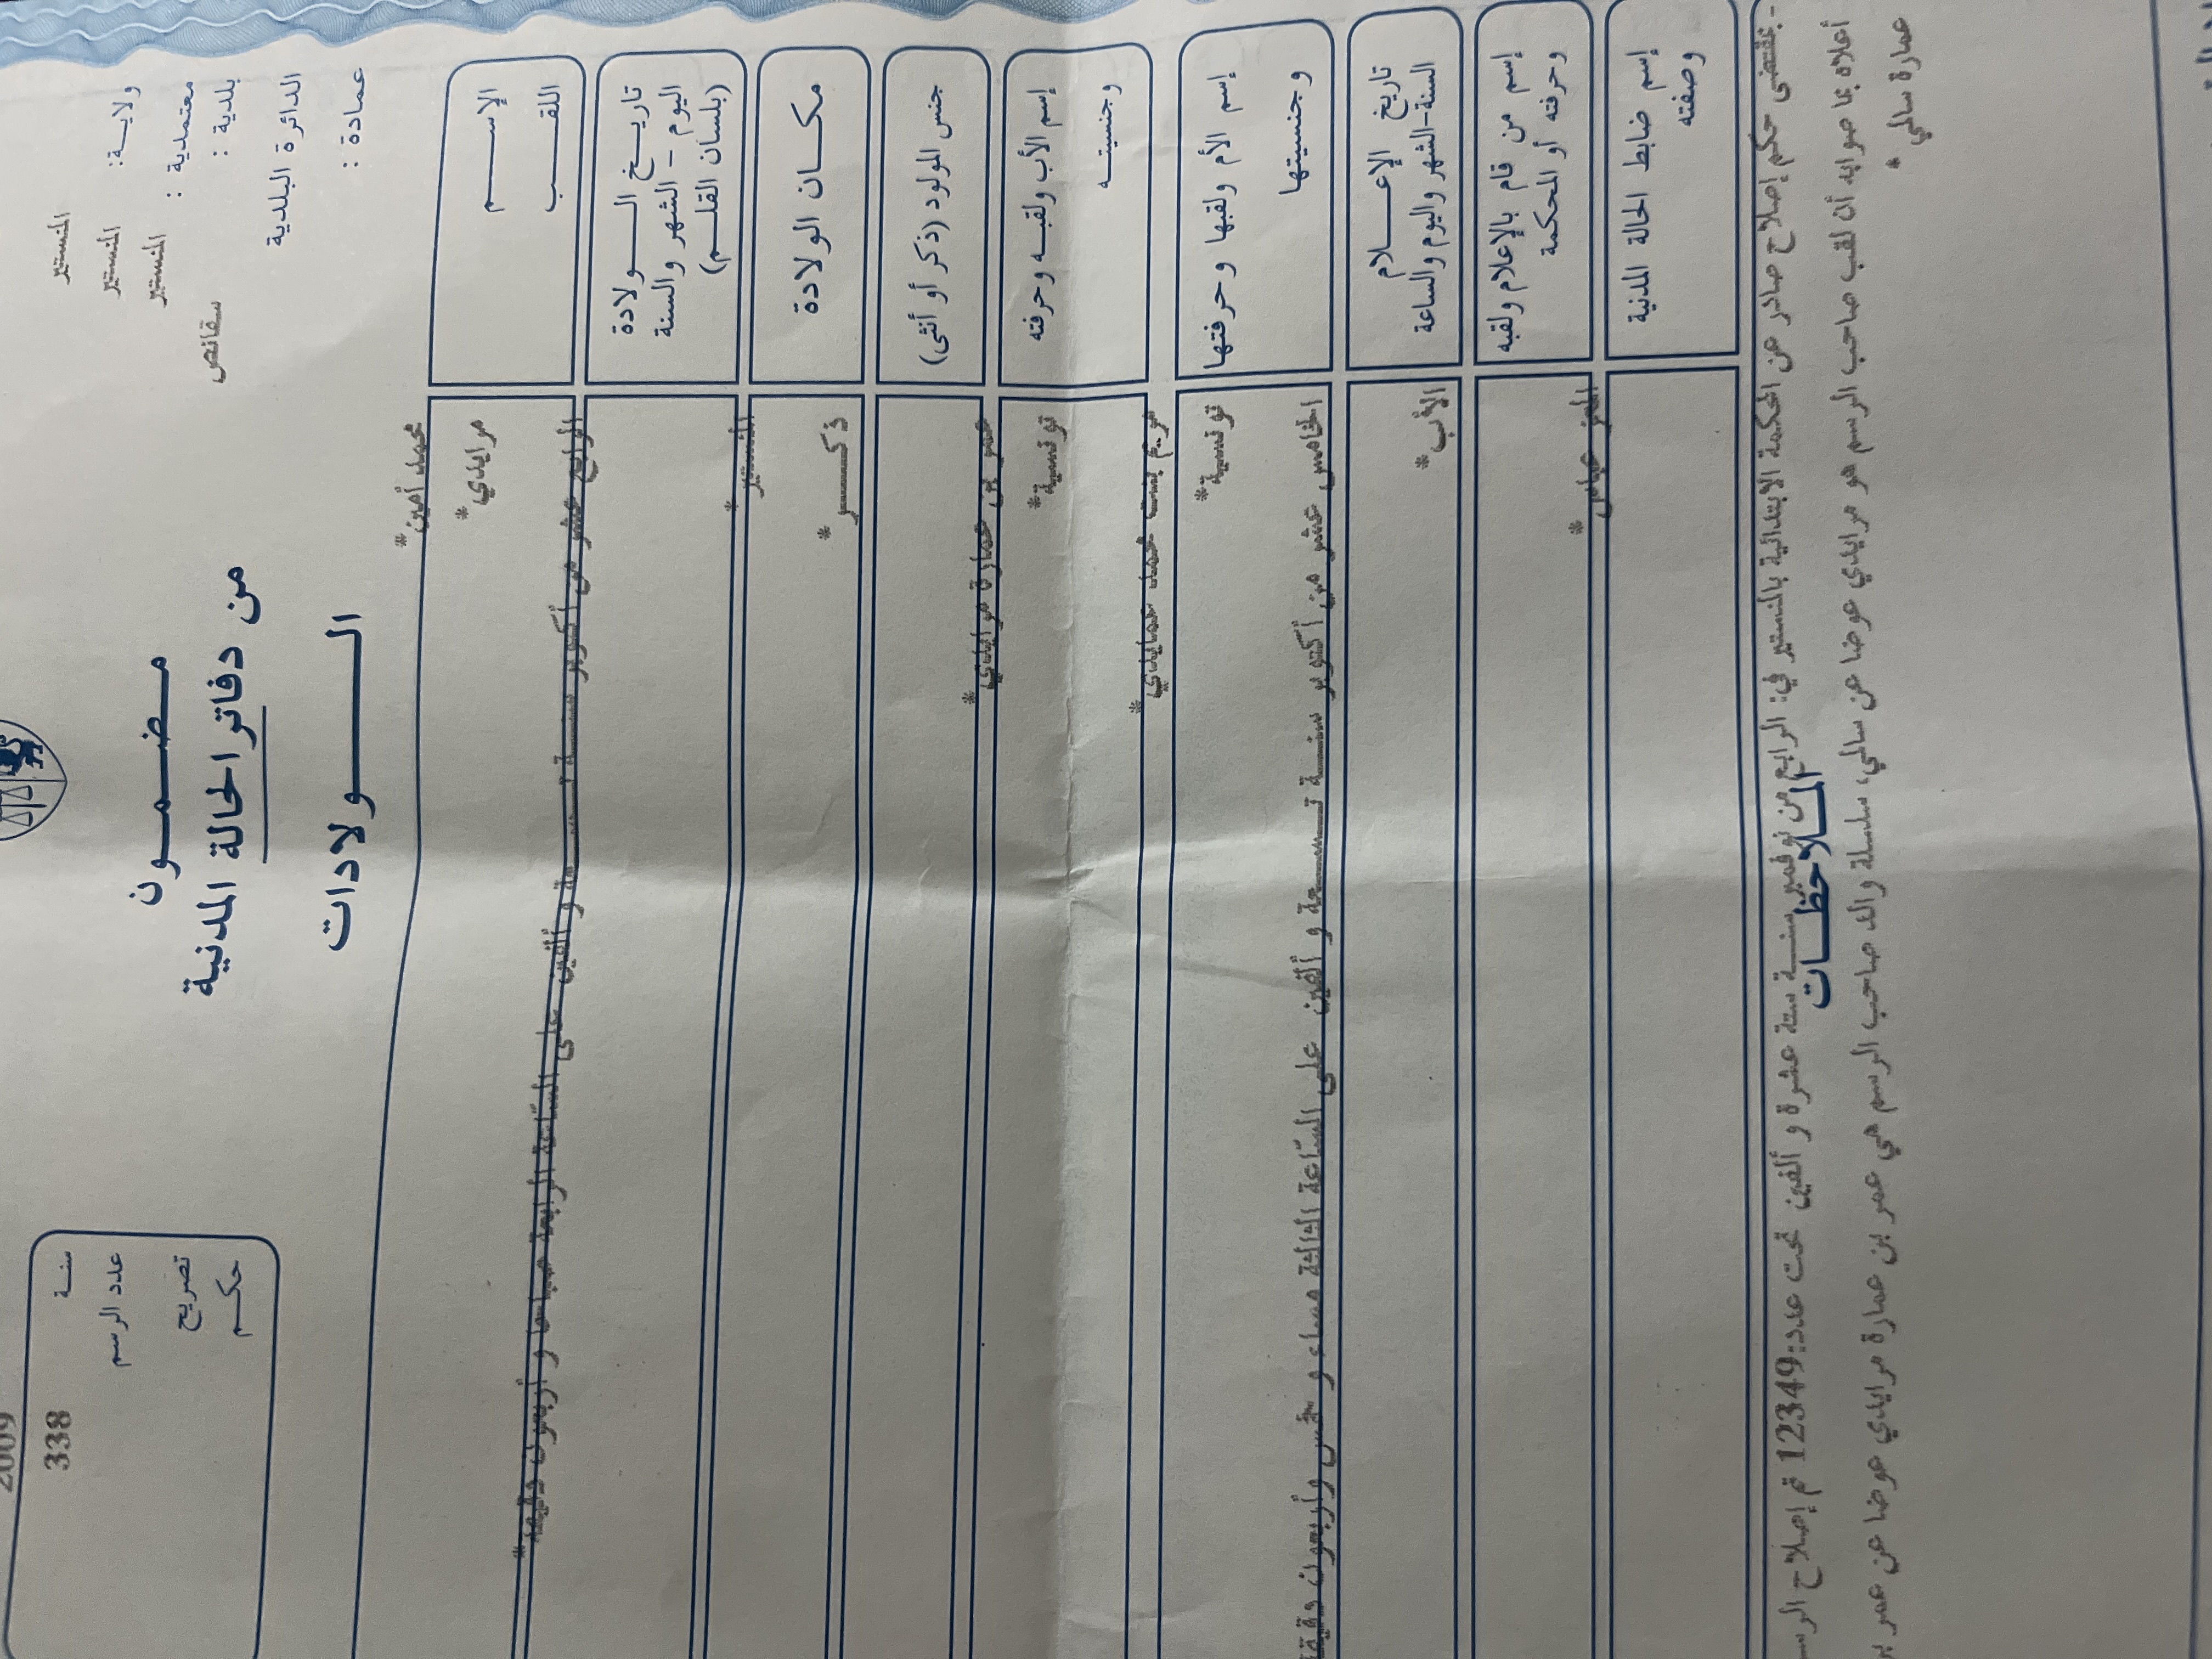 2009
338
سنة
عدد الرسم
تصريح
حكم
مضمون
من دفاتر الحالة المدنية
الولادات
ولاية: المنستير
معتمدية : المنستير
بلدية : المنستير
الدائرة البلدية سقانص
عمادة :
الإسم محمد أمين*
اللقب مرايدي*
تاريخ الولادة
اليوم - الشهر والسنة
(بلسان القلم)
الرابع عشر من أكتوبر سنة تسعة و ألفين على السّاعة الرابعة صباحا و أربعون دقيقة*
مكان الولادة
المنستير*
جنس المولود (ذكر أو أنثى)
ذكر*
إسم الأب ولقبه وحرفته
عمر بن عمارة مرايدي*
وجنسيته
تونسية*
إسم الأم ولقبها وحرفتها
مريم بنت محمد
وجنسيتها
تونسية*
تاريخ الإعلام
السنة-الشهر واليوم والساعة
الخامس عشر من أكتوبر سنة تسعة و ألفين على السّاعة الثالثة مساء و خمس وأربعون دقيقة
إسم من قام بالإعلام ولقبه
وحرفته أو المحكمة
الأب*
إسم ضابط الحالة المدنية
وصفته
المعز عباس*
الملاحظات
- بمقتضى حكم إصلاح صادر عن المحكمة الابتدائية بالمنستير في: الرابع من نوفمبر سنة ستة عشرة و ألفين تحت عدد:12349 تم إصلاح الرسم
أعلاه بما صوابه أن لقب صاحب الرسم هو مرايدي عوضا عن سالمي، سلسلة والد صاحب الرسم هي عمر بن عمارة مرايدي عوضا عن عمر بن
عمارة سالمي*